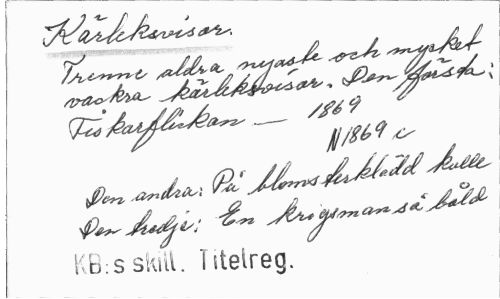 Kärleksvisor.
Trenne aldra nyaste och mycket
vackra kärleksvisor. Den första:
Fiskarflickan — 1869
N1869 c
Den andra: På blomsterklädd kulle
Den tredje: En krigsman så båld
KB:s skill. Titelreg.